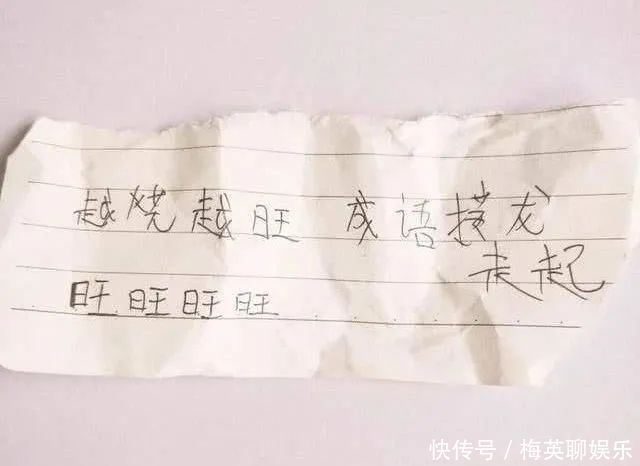 越烧越旺 成语接龙
走起
旺旺旺旺......
快传号/梅英聊娱乐